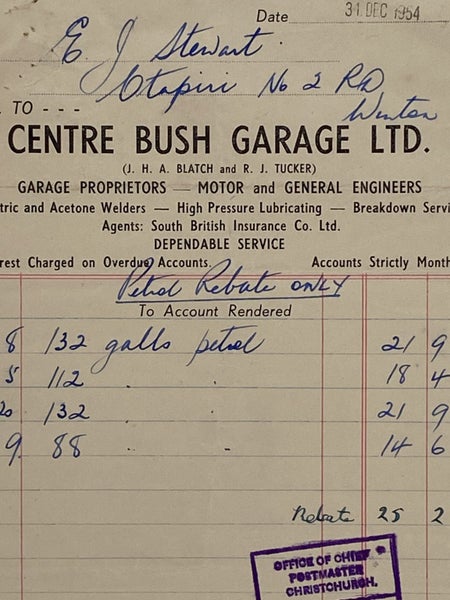 Date 31 DEC 1954
E J Stewart.
Otapiri No 2 RD
Winton
. TO - - -
CENTRE BUSH GARAGE LTD.
(J. H. A. BLATCH and R. J. TUCKER)
GARAGE PROPRIETORS — MOTOR and GENERAL ENGINEERS
tric and Acetone Welders — High Pressure Lubricating — Breakdown Servi
Agents: South British Insurance Co. Ltd.
DEPENDABLE SERVICE
rest Charged on Overdue Accounts. Accounts Strictly Month
Petrol Rebate ONLY
To Account Rendered
8 132 galls petrol 21 9
5 112 . . 18 4
20 132 . . 21 9
9 88 . - 14 6
Rebate 25 2
OFFICE OF CHIEF
POSTMASTER
CHRISTCHURCH.